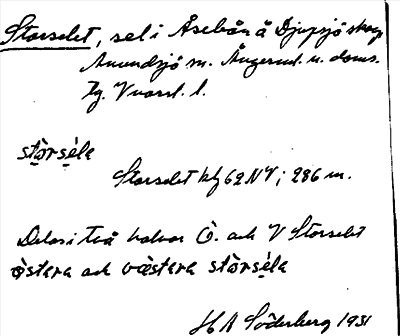 Storselet, sel i Åseboån å Djupsjö skog
Anundsjö sn. Ångerml. n. doms.
Tg. Vnorrl. l.
stòrsèla
Storselet kbl 62 NV; 286 m.
Delas i två halvor Ö. och V Storselet
òstera och vàstera stòrsèla
H A Söderberg 1931